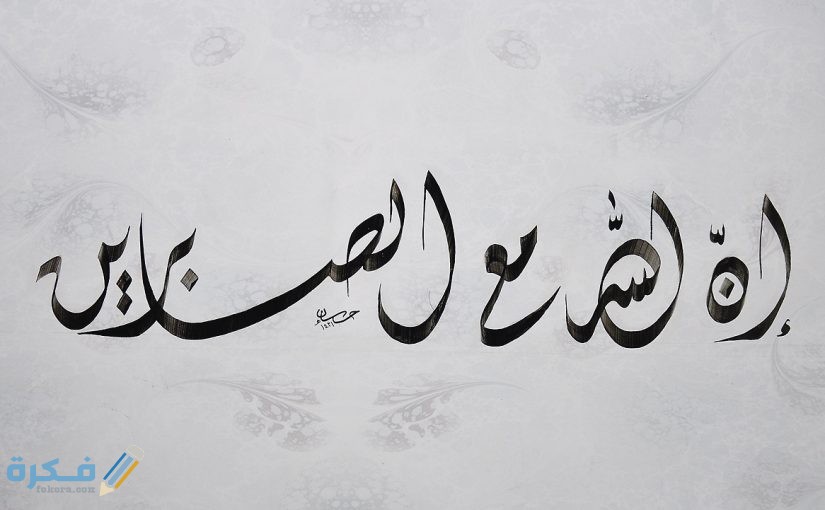 إنّ الله مع الصابرين
فكرة
fukura.com